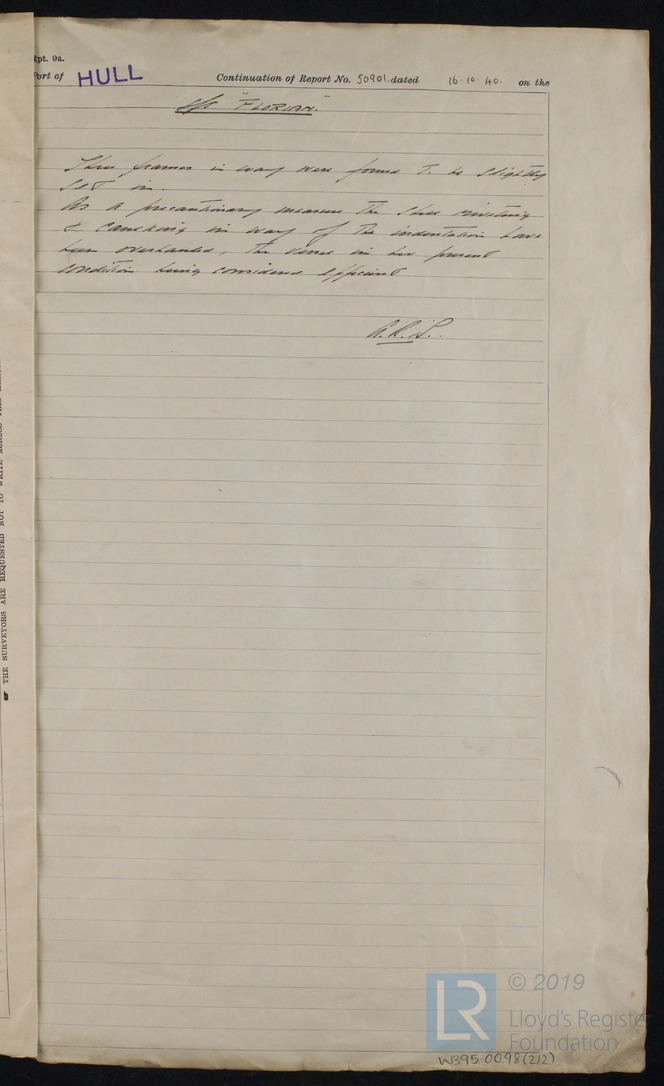 Rpt. 9a.
Port of HULL Continuation of Report No. 50901. dated 16·10·40. on the
S/S "FLORIAN".
Three frames in way were found to be slightly
set in.
As a precautionary measure the shell riveting
& caulking in way of the indentation have
been overhauled, the vessel in her present
condition being considered efficient
THE SURVEYORS ARE REQUESTED NOT TO WRITE ACROSS THIS
LR
© 2019
Lloyd's Register
Foundation
W395-0098(2/2)